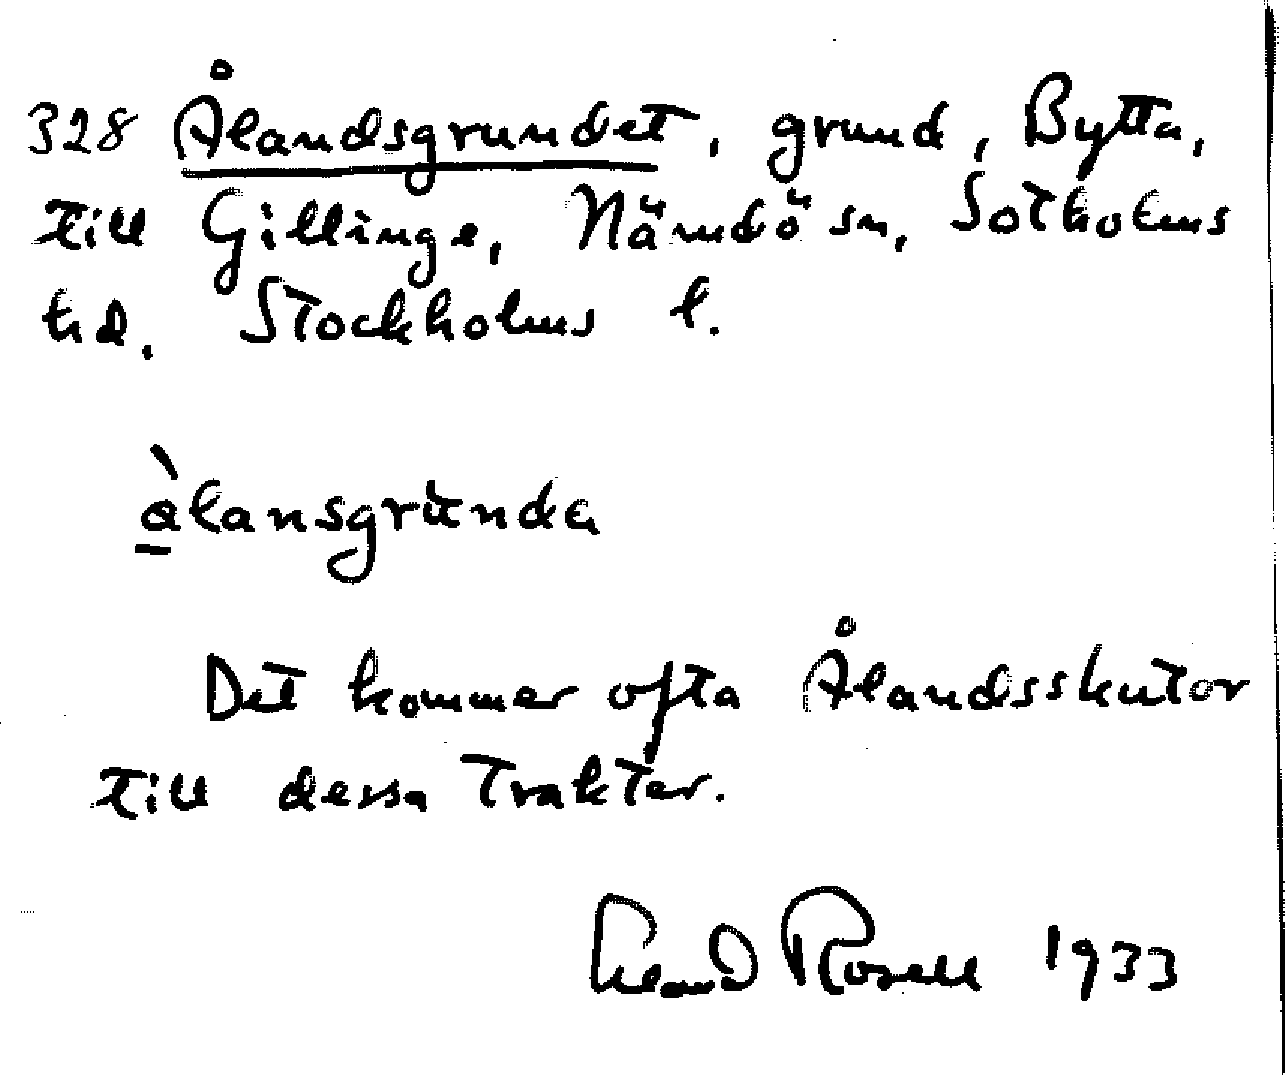 328 Ålandsgrundet, grund, Bytta,
till Gillinge, Nämdö sn, Sotholms
hd. Stockholms l.
àlansgrùnda
Det kommer ofta Ålandsskutor
till dessa trakter.
Rosell 1933